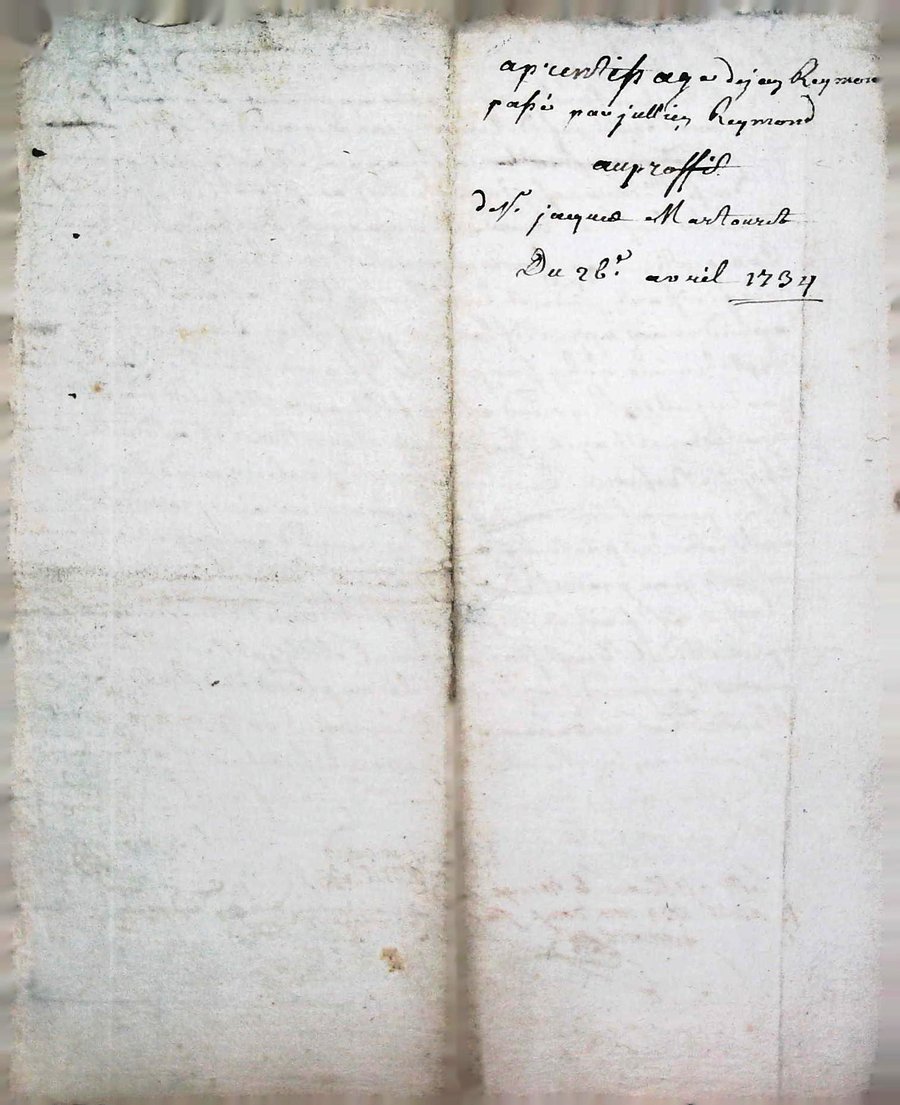 aprentissage de jean Reymond
passé par jullien Reymond
au proffit
de Sr. jacques Martouret
Du 26e. avril 1734